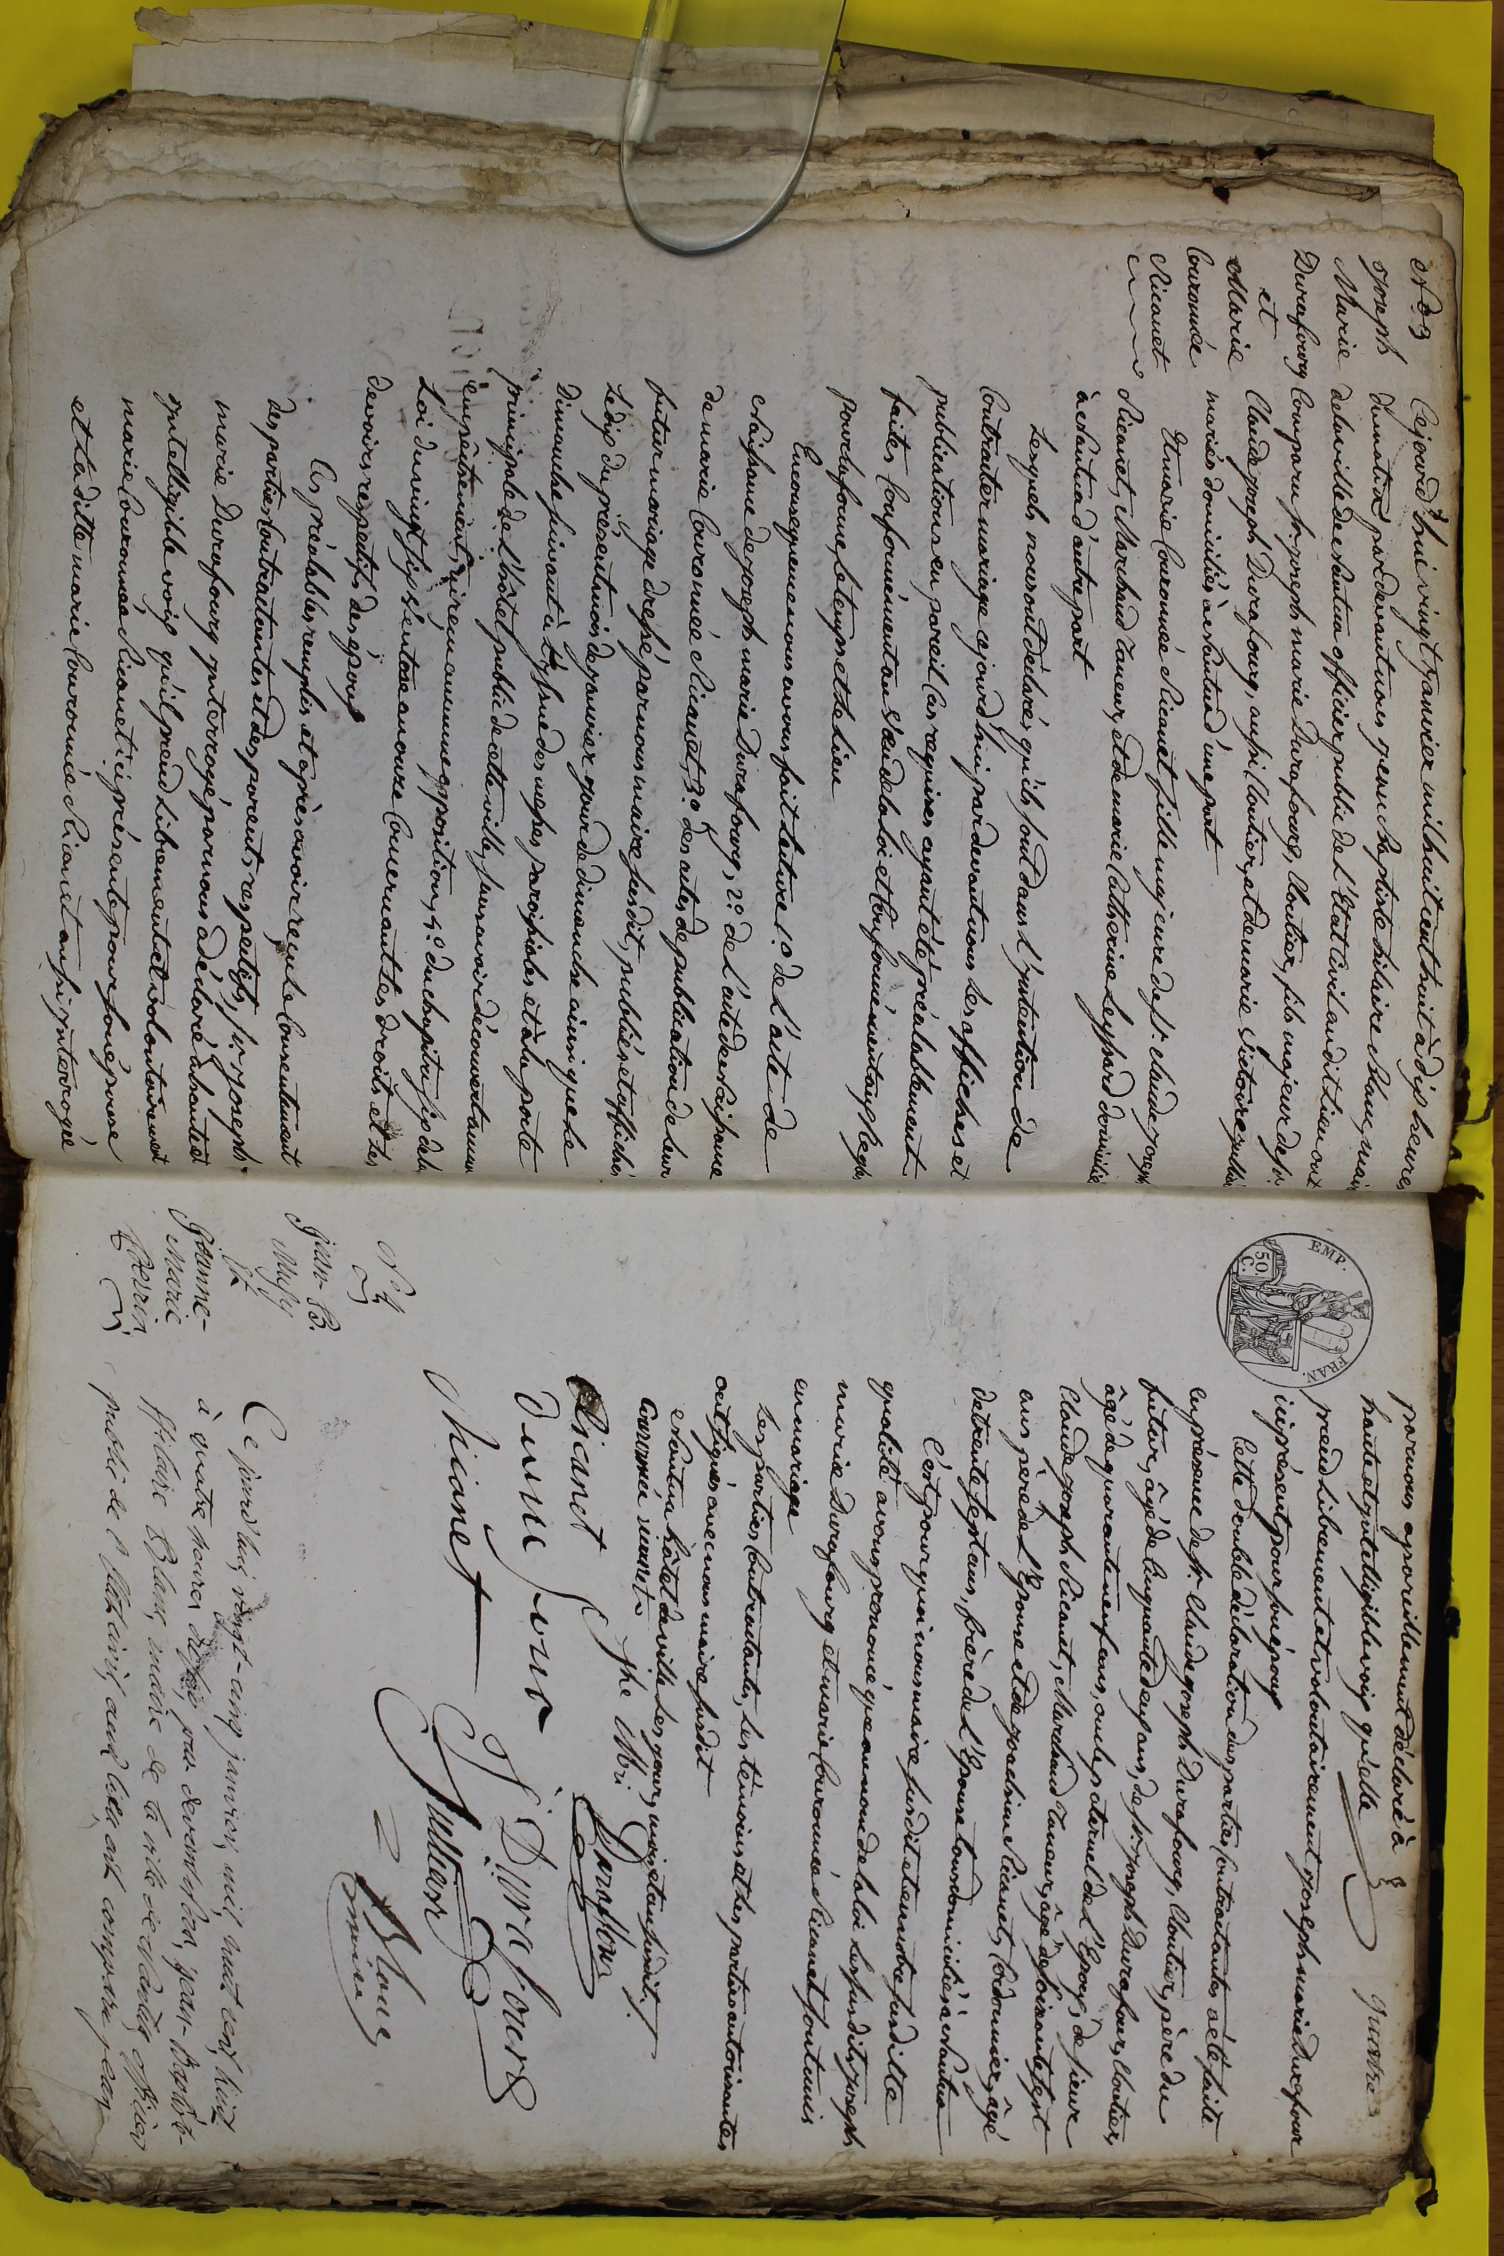 N.° 3
Joseph
Marie
Durafourg
et
Marie
Couronnée
Nicanet
Cejourd'hui vingt janvier mil huit cent huit à dix heures
du matin, pardevant nous Jean Baptiste hilaire Blanc, mair
de la ville de Nantua officier public de l'Etat Civil audit lieu ont
Comparu Sr. joseph marie Durafourg, Cloutier, fils majeur de Sr.
Claude joseph Durafourg, aussi Cloutier, et de marie
mariés domiciliés à Nantua d'une part
Et marie Couronnée Nicanet fille majeure de Sr. Claude joseph
Nicanet, Marchand Taneur, et de marie Catherine domicilié
à Nantua d'autre part
Lesquels nous ont déclaré, qu'ils sont dans l'jntention de
Contracter mariage cejourd'hui pardevant nous les affiches et
publications en pareil Cas requises ayant été préalablement
faites Conformément au vœu de la loi et Conformément aux Regles
pour la forme, le temps et le lieu
En consequence nous avons fait lecture 1.° de l'acte de
Naissance de joseph marie Durafourg, 2.° de l'acte de Naissance
de marie Couronnée Nicanet, 3.° des actes de publication de leur
futur mariage dressé par nous maire susdit, publiés et affichés
Le dix du présent mois de janvier jour de dimanche ainsi que le
dimanche suivant à l'issue des messes paroissiales et à la porte
principale de l'hôtel public de cette ville, sans avoir découvert aucun
empêchement, ni reçu aucune opposition, 4.° du chapitre six de la
Loi du vingt six Ventose an onze Concernant les droits et les
devoirs respectifs des époux
Ces préalables remplis et après avoir reçu le Consentement
des parties Contractantes et des parents respectifs, Sr. joseph
marie Durafourg jnterrogé par nous a déclaré à haute et
jntelligible voix qu'il prend Librement et volontairement
marie Couronnée Nicanet ici présente pour son épouse
et la ditte marie Couronnée Nicanet aussi jnterrogée
EMP. FRAN.
50. C.
quatre
par nous a pareillement déclaré à
haute et jntelligible voix qu'elle
prend Librement et volontairement joseph marie Durafour
ici présent pour son époux
Cette double déclaration des parties Contractantes a été faite
en présence de Sr. Claude joseph Durafourg, Cloutier, père du
futur, âgé de Cinquante deux ans, de Sr. joseph Durafour, Cloutier
âgé de quarante neuf ans, oncle paternel de l'Epoux, de sieur
Claude joseph Nicanet, Marchand Taneur, âgé de soixante sept
ans père de l'Epouse et de joachim Nicanet, Cordonnier, âgé
de trente sept ans, frère de l'Epouse tous domiciliés à Nantua
C'est pourquoi nous maire susdit et en notre susditte
qualité avons prononcé qu'au nom de la loi les susdits joseph
marie Durafourg et marie Couronnée Nicanet sont unis
en mariage
Les parties Contractantes, les témoins et les parties autorisantes
ont signés avec nous maire susdit
à Nantua hôtel de ville les jour, mois et an susdit.
Couronnée nicanet
jph Mri Durafour
Nicanet
Durafour
J. Durafourg
Nicanet
Blanc
maire
N.° 4
Jean-B.
et
Jeanne-
Marie
Ce jourd'hui, vingt-cinq janvier, mil huit cent huit
à quatre heures du soir, par devant nous, Jean-Baptiste-
Hilaire Blanc, maire de la ville de Nantua, officier
public de l'Etat civil audit lieu ont comparu Jean-